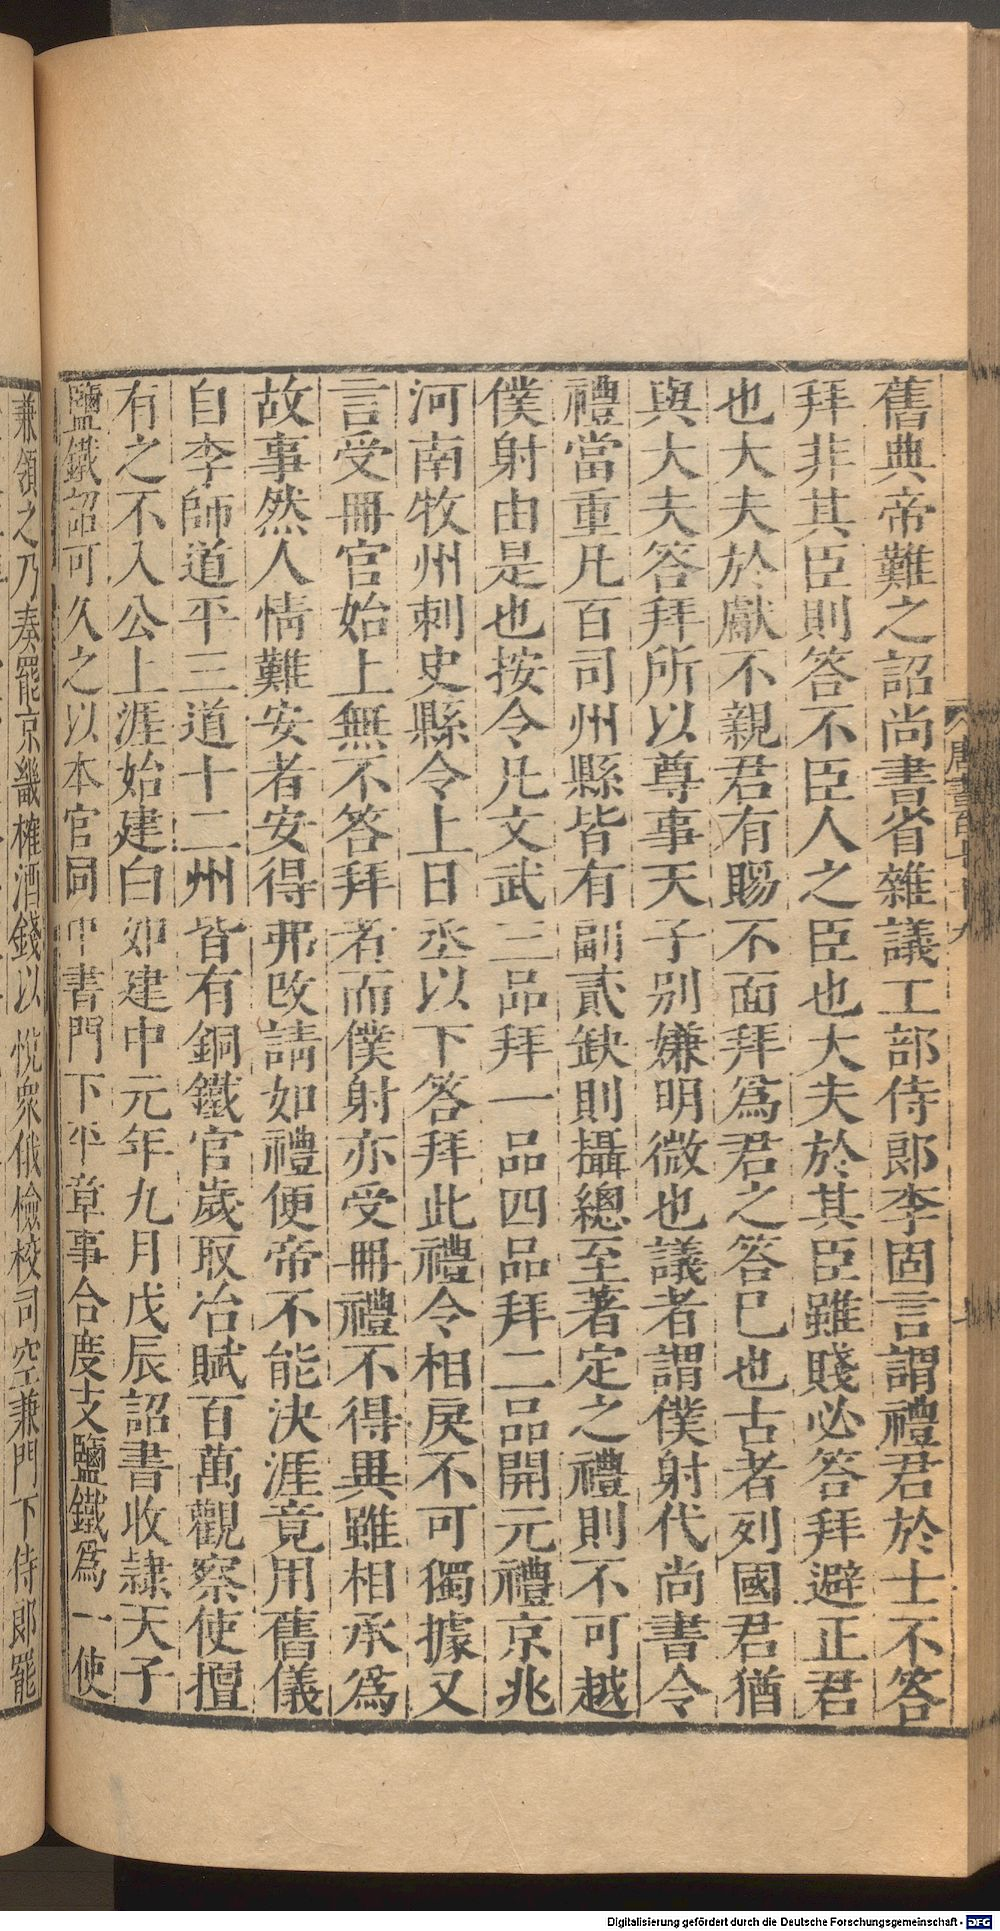 舊典帝難之詔尚書省雜議工部侍郎李固言謂禮君於士不答
拜非其臣則答不臣人之臣也大夫於其臣雖賤必答拜避正君
也大夫於獻不親君有賜不面拜為君之答已也古者列國君猶
與大夫答拜所以尊事天子別嫌明微也議者謂僕射代尚書令
禮當重凡百司州縣皆有副貳缺則攝總至著定之禮則不可越
僕射由是也按令凡文武三品拜一品四品拜二品開元禮京兆
河南牧州刺史縣令上日丞以下答拜此禮令相戾不可獨據又
言受冊官始上無不答拜者而僕射亦受冊禮不得異雖相承為
故事然人情難安者安得弗改請如禮便帝不能決涯竟用舊儀
自李師道平三道十二州皆有銅鐵官歲取冶賦百萬觀察使擅
有之不入公上涯始建白如建中元年九月戊辰詔書收隷天子
鹽鐵詔可久之以本官同中書門下平章事合度支鹽鐵為一使
兼領之乃奏罷京畿榷酒錢以悅衆俄檢校司空兼門下侍郎罷
Digitalisierung gefördert durch die Deutsche Forschungsgemeinschaft - DFG